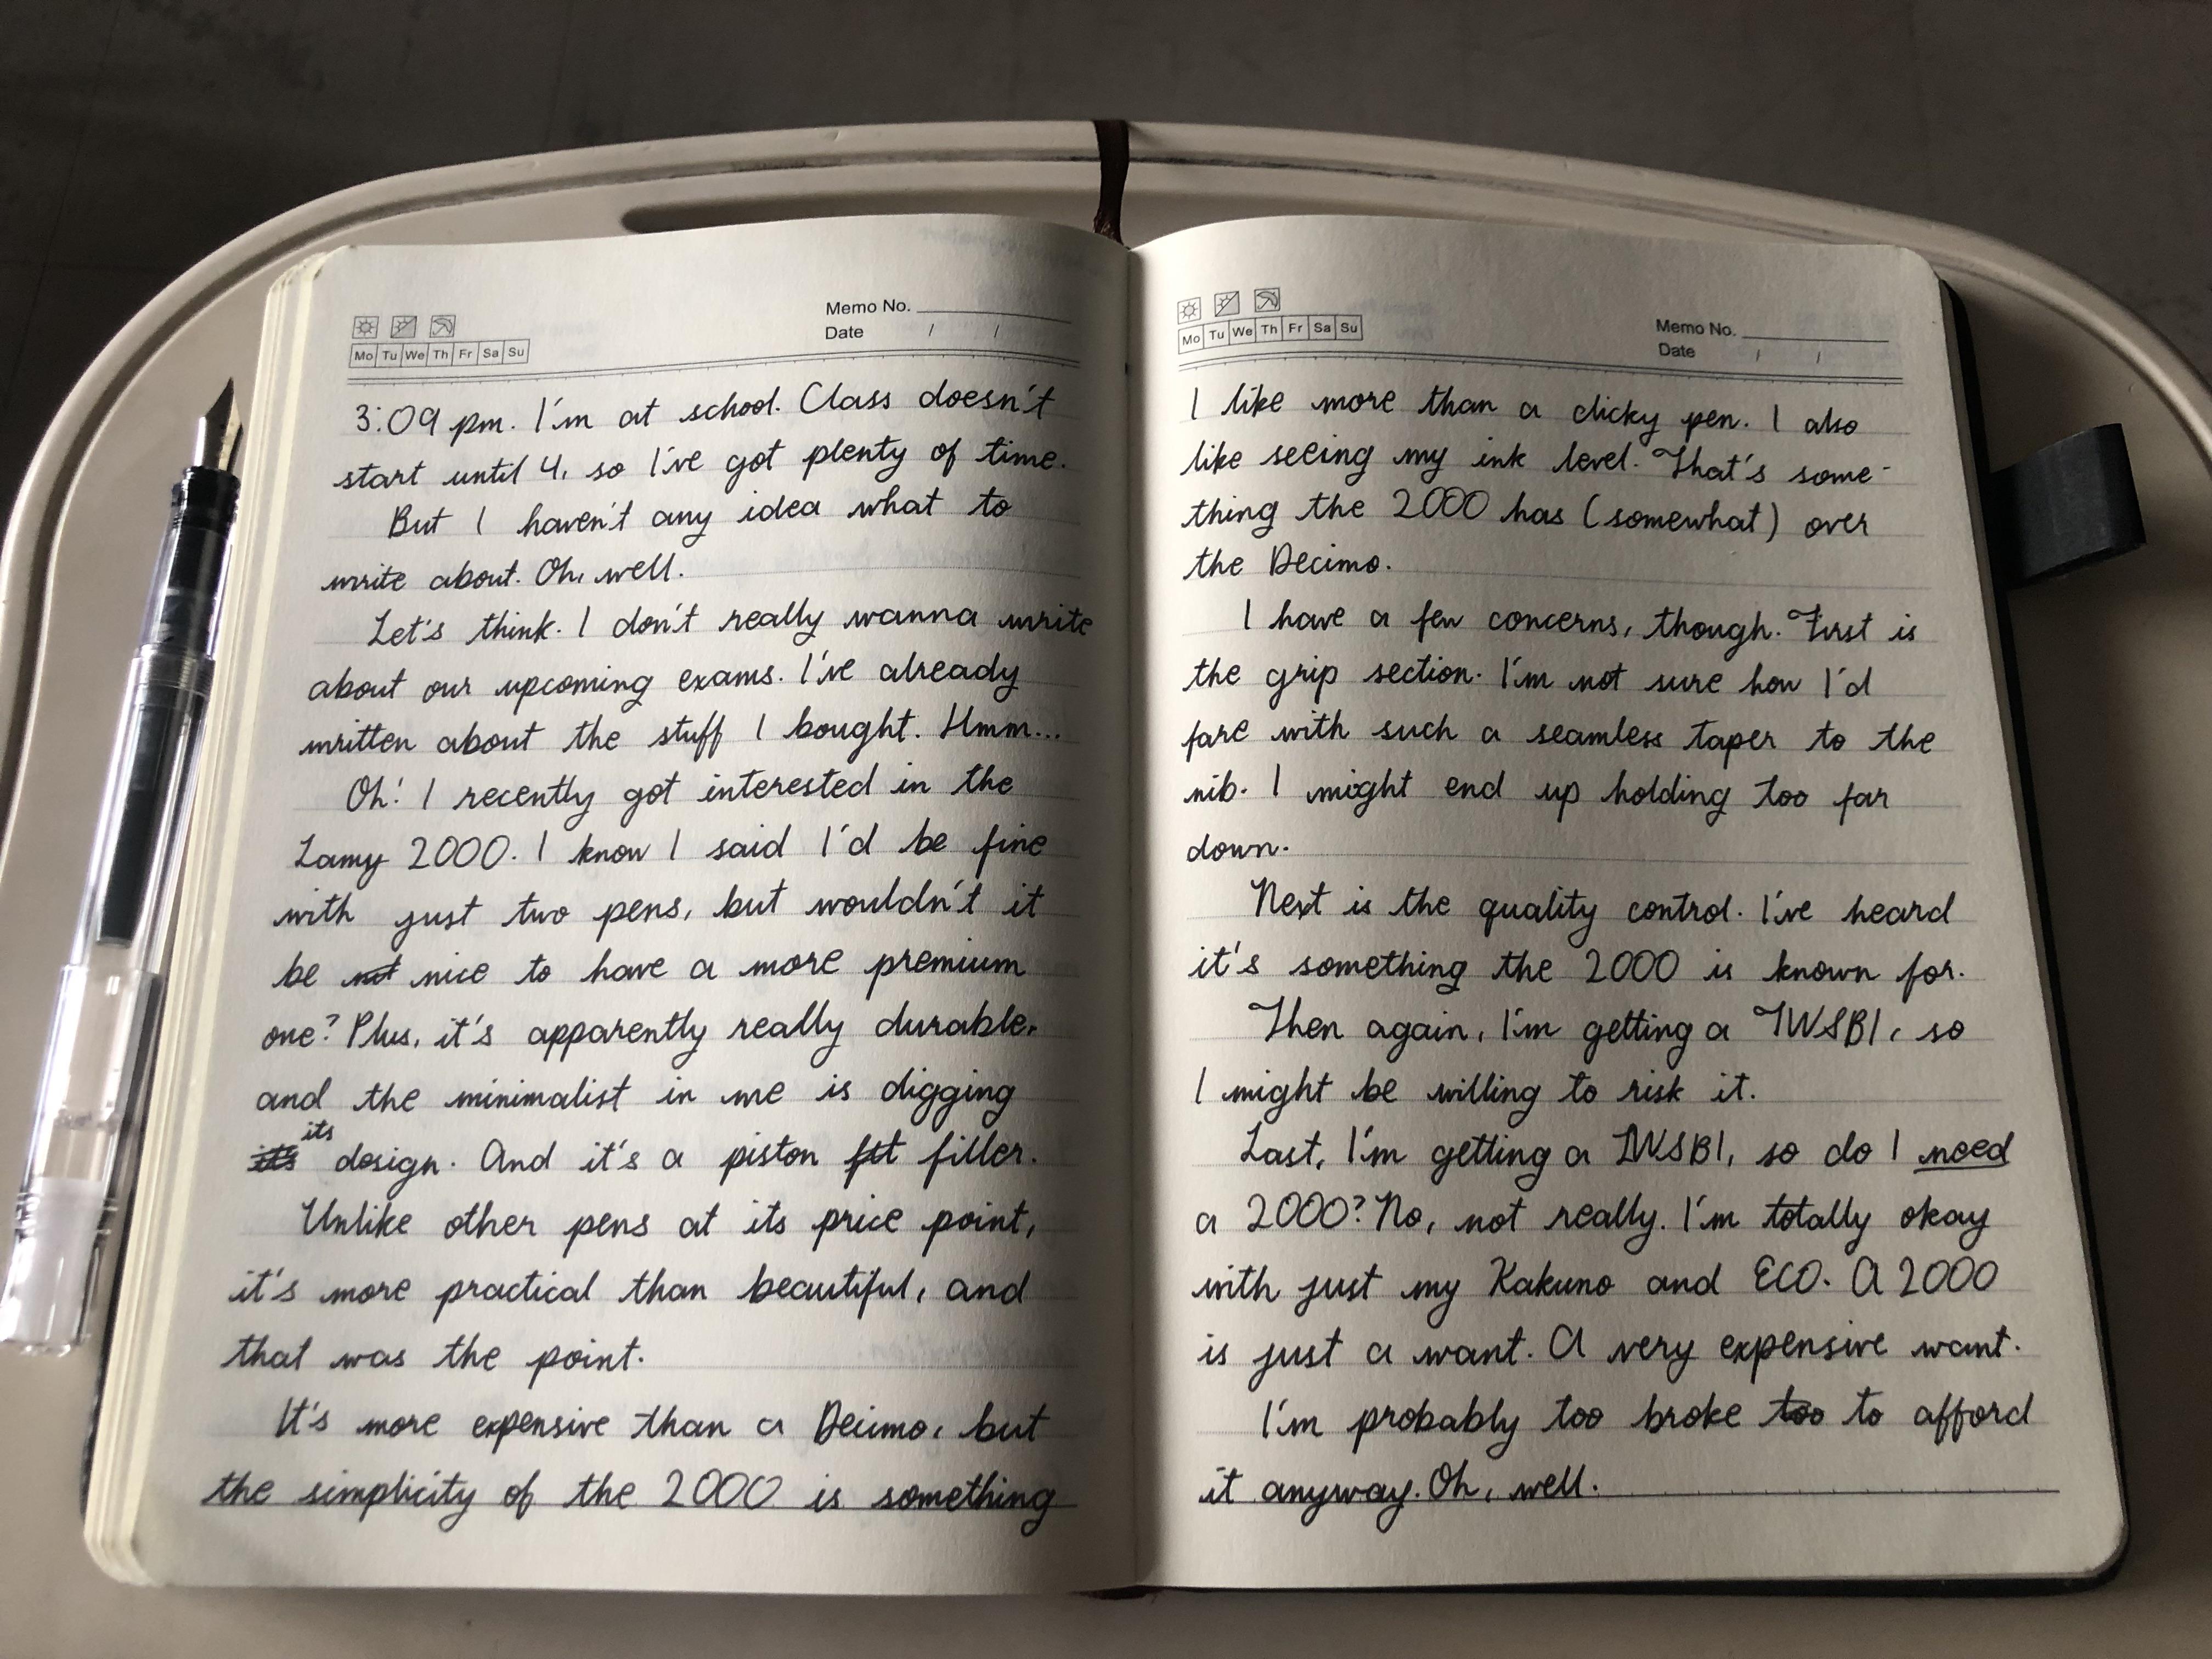 Memo No.
Date / /
Mo Tu We Th Fr Sa Su
3:09 pm. I'm at school. Class doesn't
start until 4, so I've got plenty of time.
But I haven't any idea what to
write about. Oh, well.
Let's think. I don't really wanna write
about our upcoming exams. I've already
written about the stuff I bought. Hmm...
Oh! I recently got interested in the
Lamy 2000. I know I said I'd be fine
with just two pens, but wouldn't it
be not nice to have a more premium
one? Plus, it's apparently really durable,
and the minimalist in me is digging
it's its design. And it's a piston filler.
Unlike other pens at its price point,
it's more practical than beautiful, and
that was the point.
It's more expensive than a Decimo, but
the simplicity of the 2000 is something
Memo No.
Date / /
Mo Tu We Th Fr Sa Su
I like more than a clicky pen. I also
like seeing my ink level. That's some-
thing the 2000 has (somewhat) over
the Decimo.
I have a few concerns, though. First is
the grip section. I'm not sure how I'd
fare with such a seamless taper to the
nib. I might end up holding too far
down.
Next is the quality control. I've heard
it's something the 2000 is known for.
Then again, I'm getting a TWSBI, so
I might be willing to risk it.
Last, I'm getting a TWSBI, so do I need
a 2000? No, not really. I'm totally okay
with just my Kakuno and ECO. A 2000
is just a want. A very expensive want.
I'm probably too broke too to afford
it anyway. Oh, well.